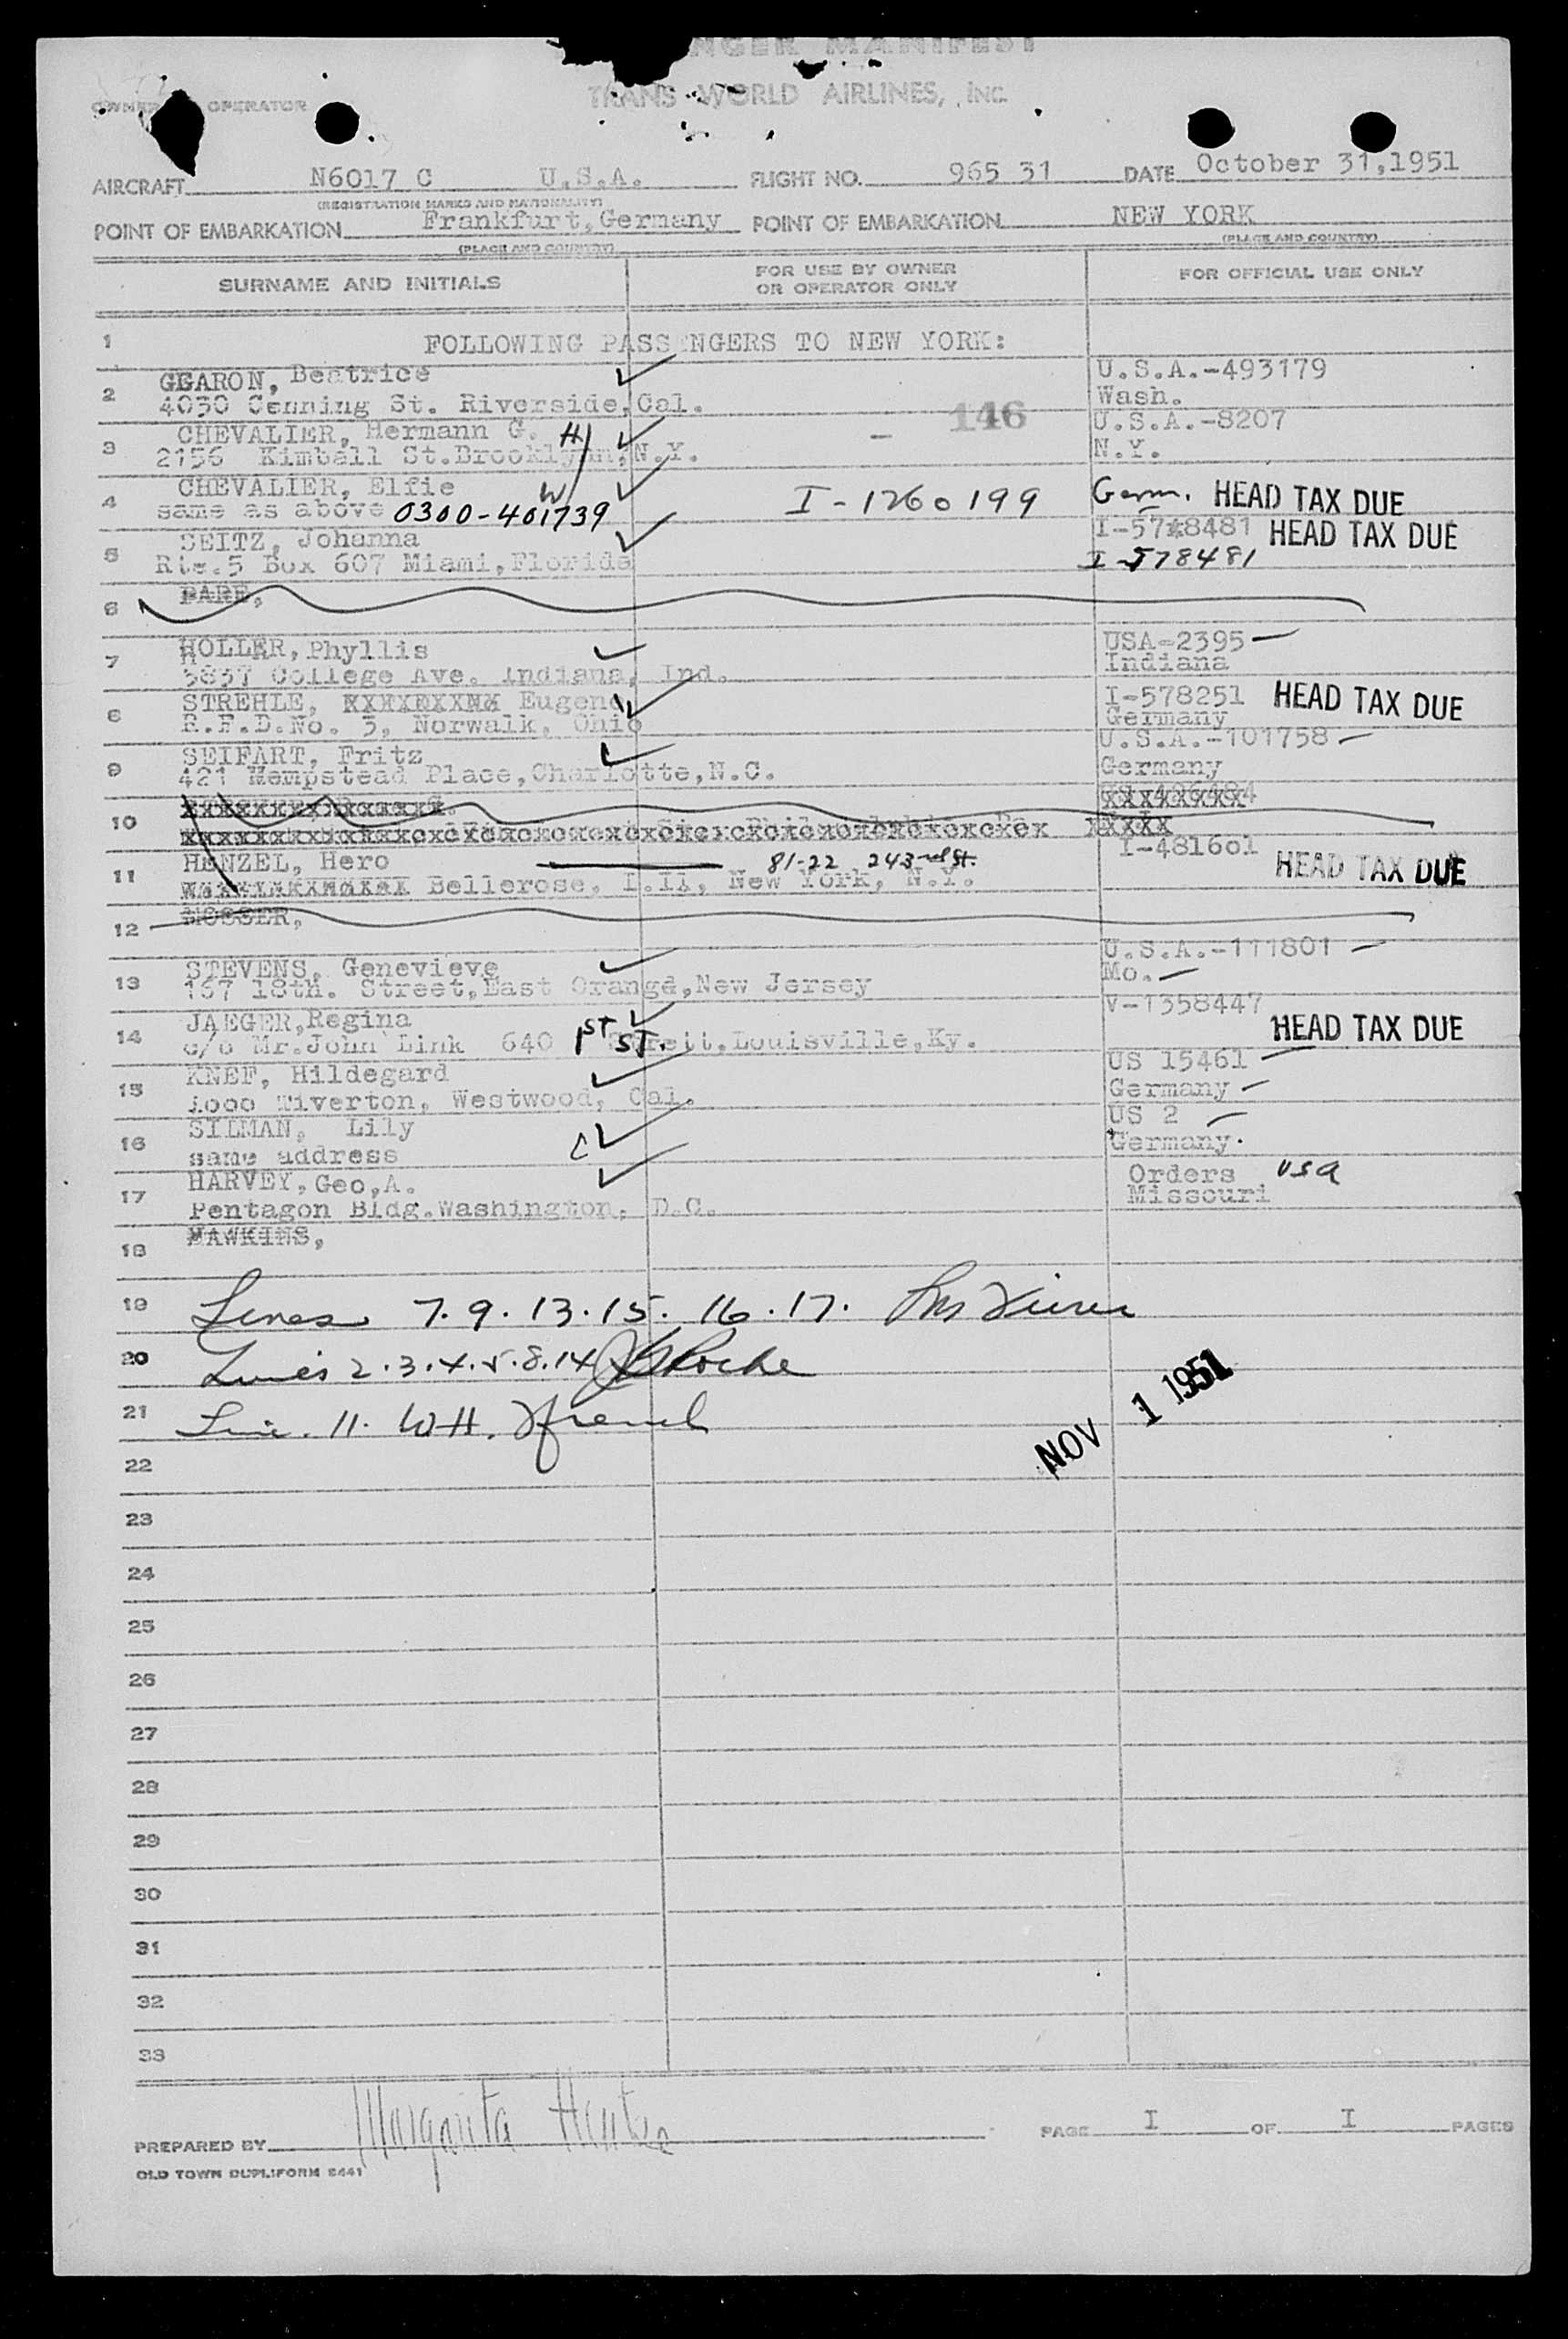 NGER MANIFEST
TRANS WORLD AIRLINES, INC.
OWNER OPERATOR
AIRCRAFT N6017 C U.S.A. FLIGHT NO. 965 31 DATE October 31,1951
(REGISTRATION MARKS AND NATIONALITY)
POINT OF EMBARKATION Frankfurt,Germany POINT OF EMBARKATION NEW YORK
(PLACE AND COUNTRY) (PLACE AND COUNTRY)
SURNAME AND INITIALS FOR USE BY OWNER OR OPERATOR ONLY FOR OFFICIAL USE ONLY
1 FOLLOWING PASS NGERS TO NEW YORK:
2 GEARON, Beatrice U.S.A.-493179
4030 Cenning St. Riverside,Cal. Wash.
146
3 CHEVALIER, Hermann G. H U.S.A.-8207
2156 Kimball St.Brooklyn,N.Y. - N.Y.
4 CHEVALIER, Elfie W I-1260199 Germ. HEAD TAX DUE
same as above 0300-401739
5 SEITZ, Johanna I-578481 HEAD TAX DUE
Rte.5 Box 607 Miami,Florida I-578481
6 PARE,
7 HOLLER, Phyllis USA-2395
3837 College Ave. Indiana, Ind. Indiana
8 STREHLE, Eugene I-578251 HEAD TAX DUE
R.F.D.No. 3, Norwalk, Ohio Germany
9 SEIFART, Fritz U.S.A.-101758
421 Hempstead Place,Charlotte,N.C. Germany
10
11 HENZEL, Hero 81-22 243rd St. I-481601 HEAD TAX DUE
Bellerose, New York, N.Y.
12 MOSSER,
13 STEVENS, Genevieve U.S.A.-111801
167 18th. Street,East Orange,New Jersey Mo.
14 JAEGER,Regina V-1358447 HEAD TAX DUE
c/o Mr.John Link 640 1ST ST. Louisville,Ky.
15 KNEF, Hildegard US 15461
1000 Tiverton, Westwood, Cal. Germany
16 SILMAN, Lily US 2
same address C Germany.
17 HARVEY, Geo,A. Orders USA
Pentagon Bldg.Washington, D.C. Missouri
18 HAWKINS,
19 Lines 7.9.13.15.16.17.
20 Lines 2.3.4.5.8.14 Roche
21 Line. 11. W.H. French
NOV 1 1951
22
23
24
25
26
27
28
29
30
31
32
33
PREPARED BY Margarita PAGE I OF I PAGES
OLD TOWN DUPLIFORM 8441